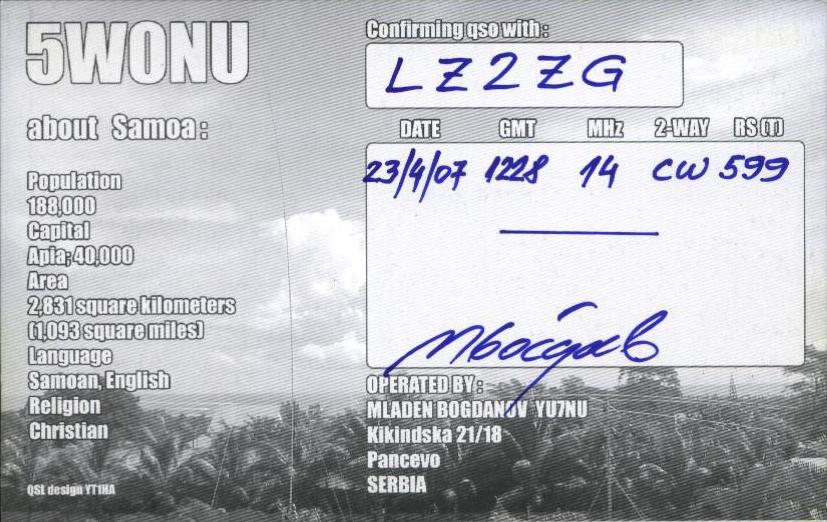 5W0NU
about Samoa:
Population
188,000
Capital
Apia; 40,000
Area
2,831 square kilometers
(1,093 square miles)
Language
Samoan, English
Religion
Christian
QSL design YT1HA
Confirming qso with:
LZ2ZG
DATE GMT MHz 2-WAY RS(T)
23/4/07 1228 14 CW 599
OPERATED BY:
MLADEN BOGDANOV YU7NU
Kikindska 21/18
Pancevo
SERBIA